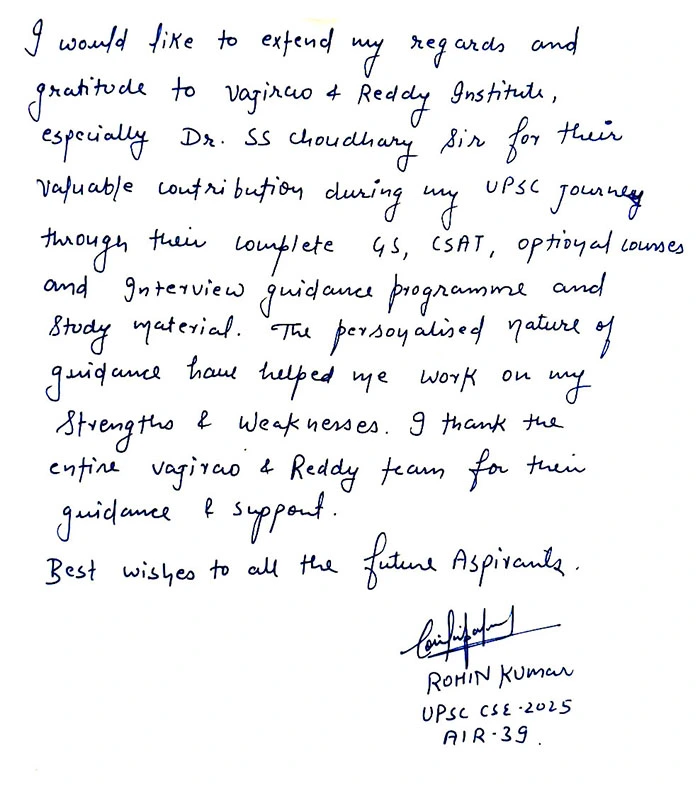 I would like to extend my regards and
gratitude to Vajirao & Reddy Institute,
especially Dr. SS Choudhary Sir for their
valuable contribution during my UPSC Journey
through their complete GS, CSAT, optional courses
and Interview guidance programme and
Study material. The personalised nature of
guidance have helped me work on my
Strengths & Weaknesses. I thank the
entire Vajirao & Reddy team for their
guidance & support.
Best wishes to all the future Aspirants.
ROHIN KUMAR
UPSC CSE-2025
AIR-39.